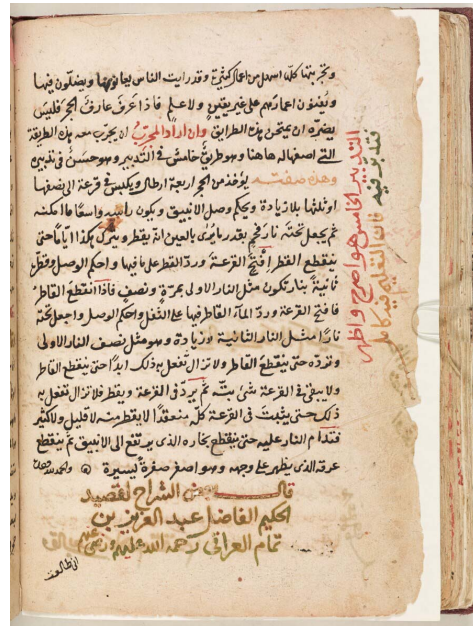 وتجربتها كلها اسهل من اعمال كثيرة وقد رايت الناس يعانونها ويضلون فيها
ويفنون اعمارهم على غير يقين ولا علم فاذا عرف عارف الحجر فليس
يضره ان يمتحن هذه الطرايق وان اراد المجرب ان يجرب معه بهذه الطريقة
التي اصفها له هاهنا وهو طريق خامس في التدبير وهو حسن في تدبيره
وهذه صفته يوخذ من الحجر اربعة ارطال ويكلس في قرعة الى نصفها
او ثلثها بلا زيادة ويحكم وصل الانبيق ويكون واسعا ما امكنه
ثم يجعل تحته نار فحم بقدر ما يرى بالعين انه يقطر ويترك هكذا اياما حتى
ينقطع القطر افتح القرعة ورد القطر على ما فيها واحكم الوصل وقطر
ثانية بنار تكون مثل النار الاولى بمرة ونصف فاذا انقطع القاطر
فافتح القرعة ورد الماء القاطر فيها على الثفل واحكم الوصل واجعل تحته
نارا مثل النار الثانية وزيادة وهو مثل نصف النار الاولى
وتردده حتى ينقطع القاطر ولا تزال تفعل به ذلك ابدا حتى ينقطع القاطر
ولا يبقى في القرعة شيء بته ثم يرد في القرعة ويقطر فلا تزال تفعل به
ذلك حتى يثبت في القرعة كله منعقدا لا يقطر منه لا قليل ولا كثير
فتدام النار عليه حتى ينقطع بخاره الذي يرتفع الى الانبيق ثم ينقطع
عرقه الذي يظهر على وجهه وهو اصفر صفرة يسيرة والحمد لله
قال بعض الشراح لقصيد
الحكيم الفاضل عبد العزيز بن
تمام العراقي رحمة الله عليه
التدبير الخامس هو اصرح واظهر
فتدبر فيه فان التعليم فيه كامل